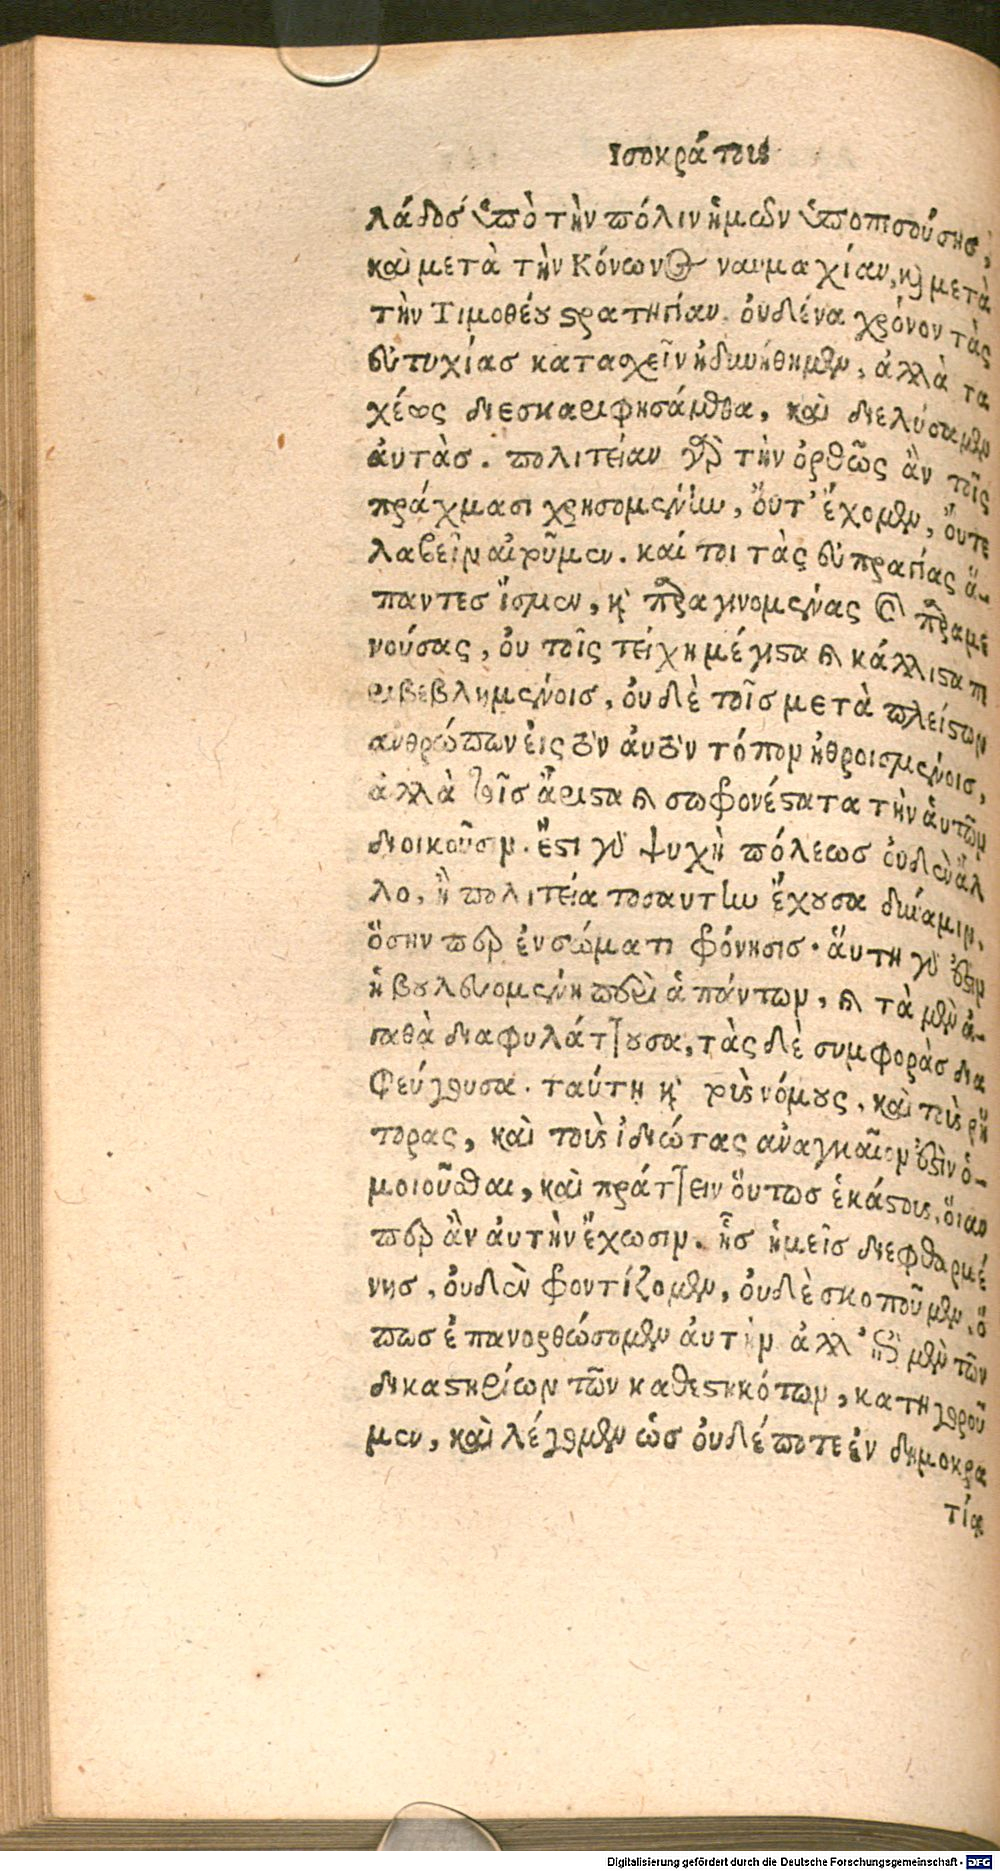 Ἰσοκράτους
λάδοσ ὑπὸ τὴν πόλιν ἡμῶν ὑποπεσούσης,
καὶ μετὰ τὴν Κόνωνος ναυμαχίαν, καὶ μετὰ
τὴν Τιμοθέου στρατηγίαν. ὀυδένα χρόνον τὰς
ἐυτυχίασ κατασχεῖν ἠδυνήθημεν, ἀλλὰ τα
χέως διεσκαριφησάμεθα, καὶ διελύσαμεν
ἀυτὰσ. πολιτείαν γὰρ τὴν ὀρθῶς ἂν τοῖς
πράγμασι χρησομένην, ὄυτ' ἔχομεν, ὄυτε
λαβεῖν αἰροῦμεν. καί τοι τὰς ἐυπραγίας ἅ-
παντεσ ἴσμεν, καὶ παραγινομένας καὶ παραμε
νούσας, ὀυ τοῖς τείχη μέγιστα καὶ κάλλιστα πε
ριβεβλημένοισ, ὀυδὲ τοῖσ μετὰ πλείστων
ἀνθρώπων ἐις τὸν ἀυτὸν τόπον ἠθροισμένοισ,
ἀλλὰ τοῖσ ἄριστα καὶ σωφρονέστατα τὴν ἁυτῶν
διοικοῦσιν. ἔστι γὰρ ψυχὴ πόλεωσ ὀυδὲν ἄλ
λο, ἢ πολιτεία τοσαυτην ἔχουσα δύναμιν,
ὅσην περ ἐν σώματι φρόνησισ. ἅυτη γάρ ἐστιν
ἡ βουλευομένη περὶ ἁπάντων, καὶ τὰ μὲν ἀ-
γαθὰ διαφυλάττουσα, τὰς δὲ συμφορὰσ δια
φεύγουσα. ταύτῃ καὶ τοὺς νόμους, καὶ τοὺς ῥή
τορας, καὶ τοὺς ἰδιώτας ἀναγκαῖον ἐστὶν ὁ-
μοιοῦσθαι, καὶ πράττειν ὅυτωσ ἑκάστους, ὅιαν
περ ἂν ἀυτὴν ἔχωσιν. ἧσ ἡμεῖσ διεφθαρμέ
νησ, ὀυδὲν φροντίζομεν, ὀυδὲ σκοποῦμεν, ὅ
πωσ ἐπανορθώσομεν ἀυτὴν ἀλλ' ἐπὶ μὲν τῶν
δικαστηρίων τῶν καθεστηκότων, κατηγοροῦ
μεν, καὶ λέγομεν ὡσ ὀυδέποτε ἐν δημοκρα
τίᾳ
Digitalisierung gefördert durch die Deutsche Forschungsgemeinschaft - DFG